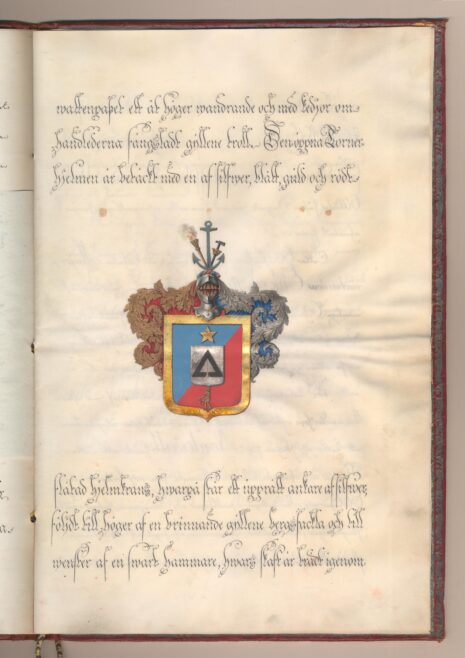 wattenpaßet ett åt höger wandrande och med kedjor om
händlederna fängsladt gyllene troll. Den öppna Torner-
hjelmen är betäckt med en af silfwer, blått, guld och rödt
flätad hjelmkrans, hwarpå står ett upprätt ankare af silfwer,
följdt till höger af en brinnande gyllene bergsfackla och till
wenster af en swart hammare, hwars skaft är brädt igenom